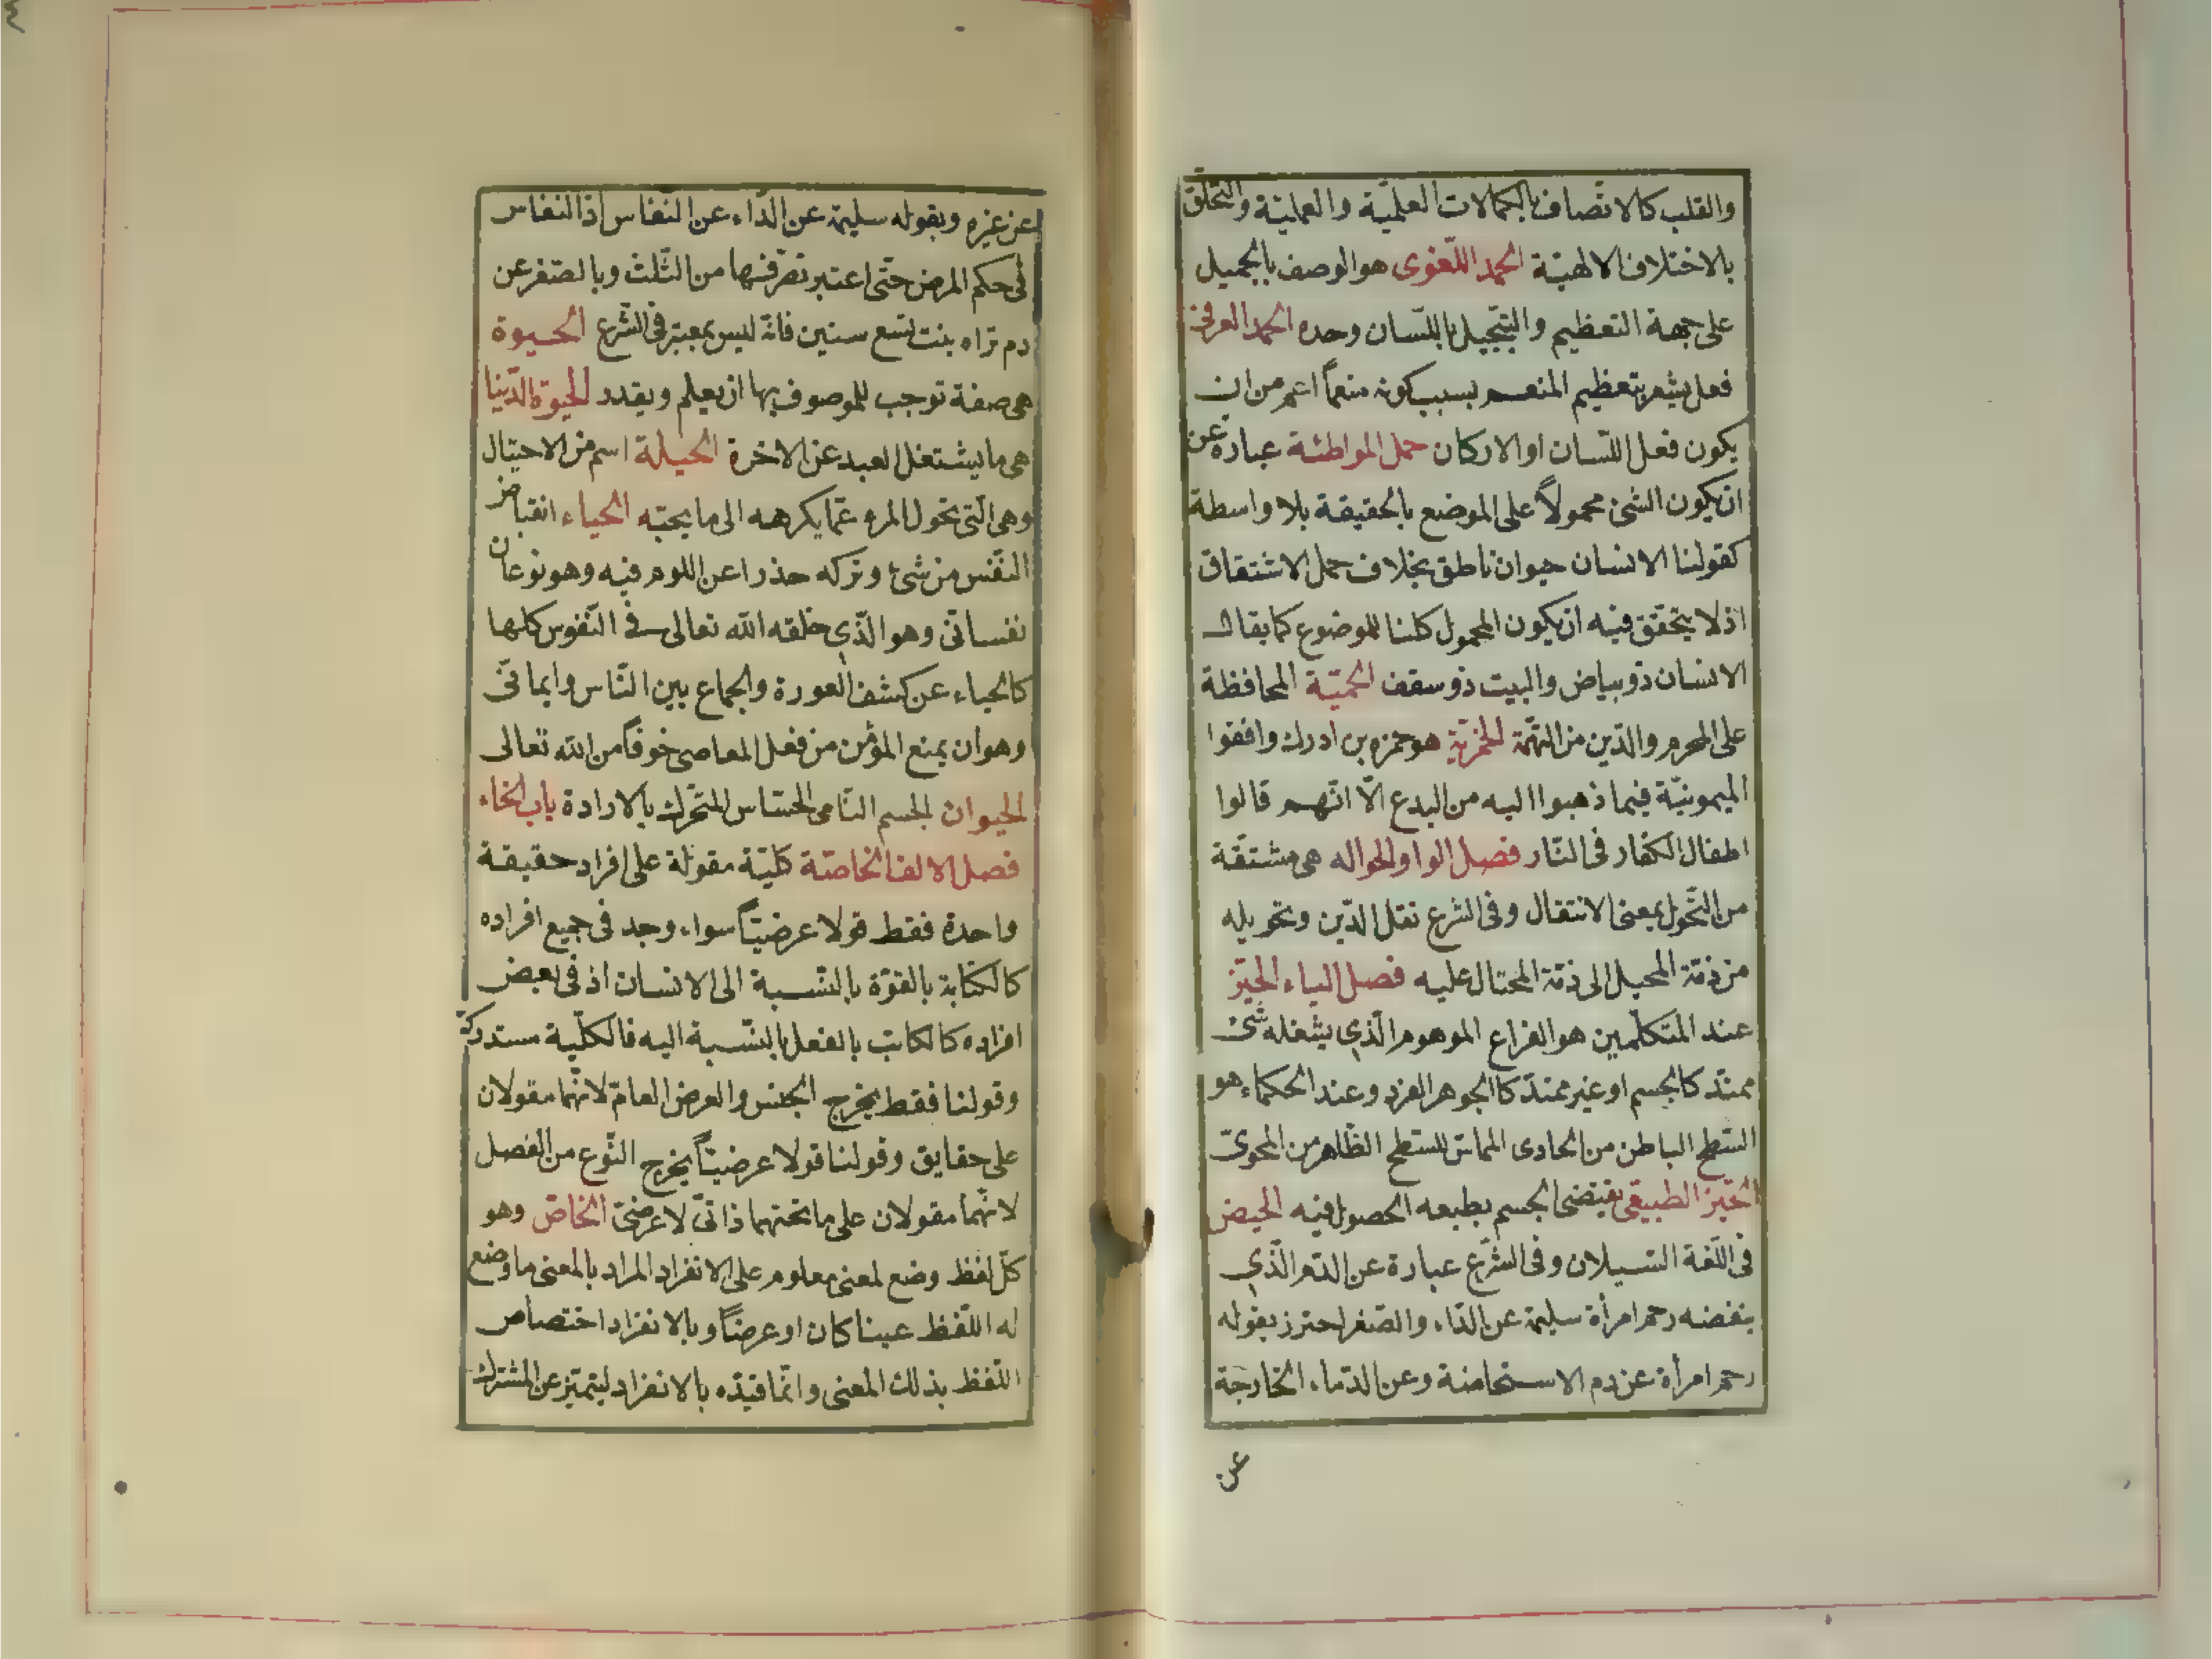 والقلب كالاتصاف بالكمالات العلمية والعملية والتخلق
بالاختلاف الالهية الحمد اللغوى هو الوصف بالجميل
على جهة التعظيم والتبجيل باللسان وحده الحمد العرفى
فعل يشعر بتعظيم المنعم بسبب كونه منعماً اعم من ان
يكون فعل اللسان او الاركان حمل المواطئة عبارة عن
ان يكون الشئ محمولاً على الموضع بالحقيقة بلا واسطة
كقولنا الانسان حيوان ناطق بخلاف حمل الاشتقاق
اذ لا يتحقق فيه ان يكون المحمول كلنا للموضوع كما يقال
الانسان ذو بياض والبيت ذو سقف الحمية المحافظة
على المحرم والدين من التهمة الحمزية هو حمزه بن ادرك وافقوا
الميمونية فيما ذهبوا اليه من البدع الّا انّهم قالوا
اطفال الكفار فى النار فصل الواو الحواله هى مشتقة
من التحول بمعنى الانتقال وفى الشرع نقل الدين وتحويله
من ذمة المحيل الى ذمة المحتال عليه فصل الياء الحيّز
عند المتكلمين هو الفراع الموهوم الّذى يشغله شئ
ممتد كالجسم او غير ممتد كاالجوهر الفرد وعند الحكماء هو
السطح الباطن من الحاوى المماس للسطح الظاهر من المحوى
الحيّز الطبيعى يقتضى الجسم بطبعه الحصول فيه الحيض
فى اللّغة السيلان وفى الشّرع عبارة عن الدّم الّذى
ينفضه رحم امرأة سليمة عن الدّاء والصّغر احترز بقوله
رحم امرأة عن دم الاستحاضة وعن الدّماء الخارجة
عن
عن غيره وبقوله سليمة عن الدّاء عن النفاس اذ النفاس
فى حكم المرض حتى اعتبر تصرّفها من الثّلث وبالصّغر عن
دم تراه بنت تسع سنين فانه ليس بمعتبر فى الشّرع الحيوة
هى صفة توجب للموصوف بها ان يعلم ويقدر الحيوة الدّنيا
هى ما يشتغل العبد عن الاخرة الحيلة اسم من الاحتيال
وهى الّتى تحول المرء عمّا يكرهه الى ما يحبّه الحياء انقباض
النّفس من شئ وتركه حذرا عن اللوم فيه وهو نوعان
نفسانى وهو الّذى خلقه الله تعالى فى النّفوس كلها
كالحياء عن كشف العورة والجماع بين النّاس وايمانى
وهو ان يمنع المؤمن من فعل المعاصى خوفاً من الله تعالى
الحيوان الجسم النّامى الحسّاس المتحرّك بالارادة باب الخاء
فصل الالف الخاصّة كليّة مقولة على افراد حقيقة
واحدة فقط قولا عرضيّاً سواء وجد فى جميع افراده
كالكتابة بالقوّة بالنّسبة الى الانسان اذ فى بعض
افراده كالكاتب بالفعل بالنّسبة اليه فالكلّية مستدركة
وقولنا فقط يخرج الجنس والعرض العامّ لانّهما مقولان
على حقايق وقولنا قولا عرضيّاً يخرج النّوع من الفصل
لانّهما مقولان على ما تحتهما ذاتىّ لا عرضىّ الخاصّ وهو
كلّ لفظ وضع لمعنى معلوم على الانفراد المراد بالمعنى ما وضع
له اللّفظ عينا كان او عرضاً وبالانفراد اختصاص
اللّفظ بذلك المعنى وانّما قيّده بالانفراد ليتميّز عن المشترك